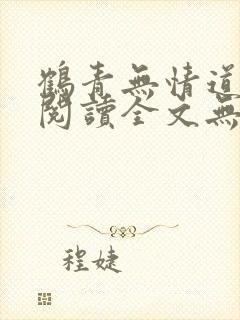 鶴青無情道
閱讀全文無
程婕